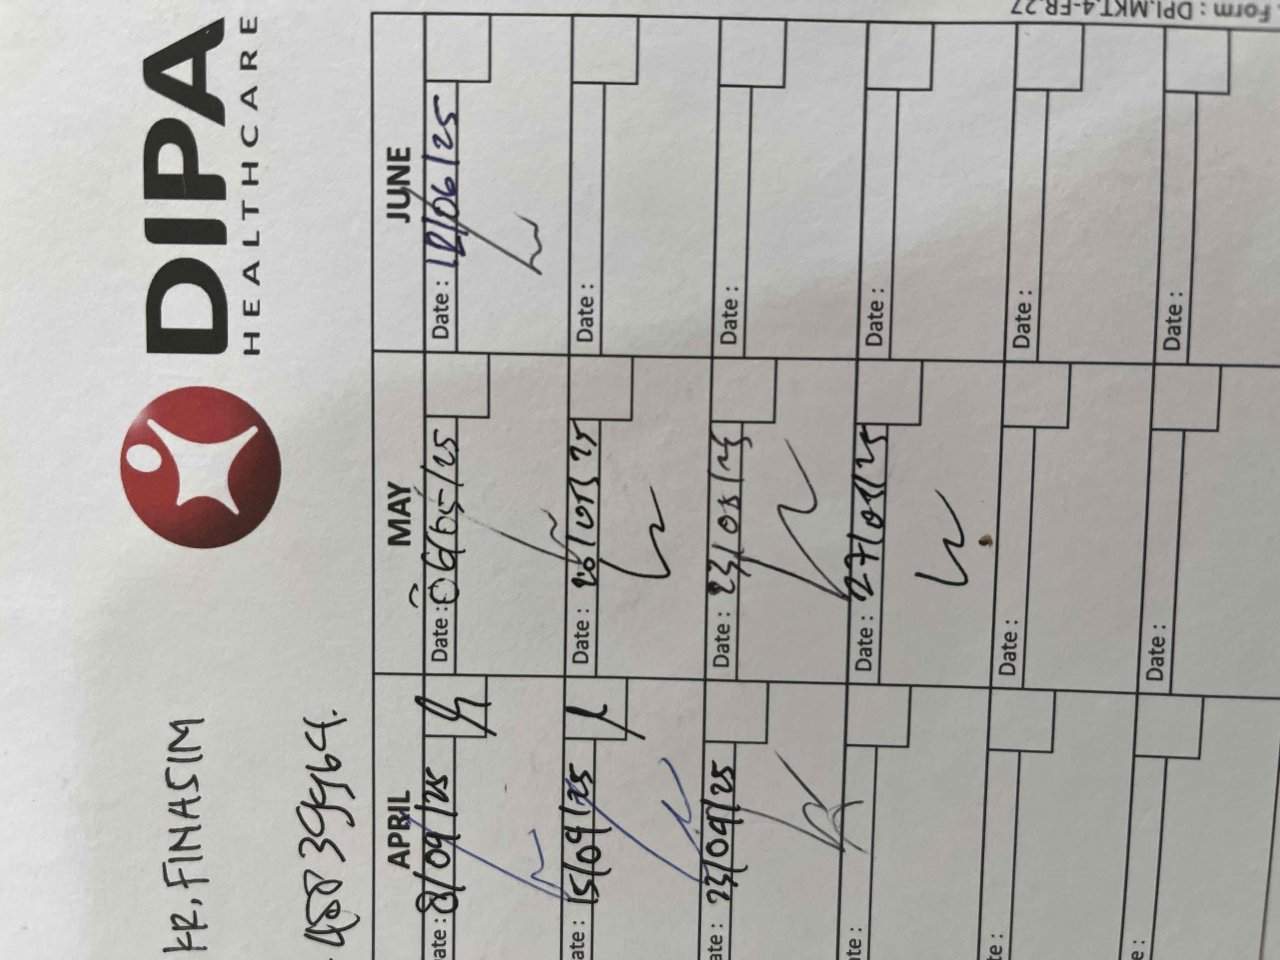 DIPA
HEALTHCARE
KR, FINASIM
APRIL MAY JUNE
ate : 8/04/25 Date : 06/05/25 Date : 12/06/25
ate : 15/04/25 Date : 20/05/25 Date :
ate : 23/04/25 Date : 23/05/25 Date :
te : Date : 27/05/25 Date :
te : Date : Date :
e : Date : Date :
Form : DPI.MKT.4-FR.27